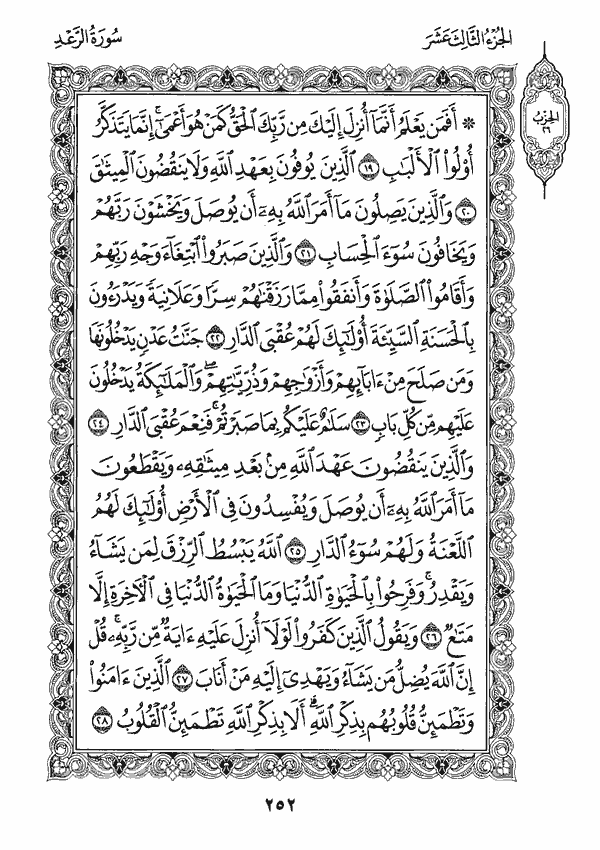 الجزء الثالث عشر
سورة الرعد
الحزب
٢٦
* أَفَمَن يَعْلَمُ أَنَّمَآ أُنزِلَ إِلَيْكَ مِن رَّبِّكَ ٱلْحَقُّ كَمَنْ هُوَ أَعْمَىٰٓۚ إِنَّمَا يَتَذَكَّرُ
أُو۟لُوا۟ ٱلْأَلْبَٰبِ ١٩ ٱلَّذِينَ يُوفُونَ بِعَهْدِ ٱللَّهِ وَلَا يَنقُضُونَ ٱلْمِيثَٰقَ
٢٠ وَٱلَّذِينَ يَصِلُونَ مَآ أَمَرَ ٱللَّهُ بِهِۦٓ أَن يُوصَلَ وَيَخْشَوْنَ رَبَّهُمْ
وَيَخَافُونَ سُوٓءَ ٱلْحِسَابِ ٢١ وَٱلَّذِينَ صَبَرُوا۟ ٱبْتِغَآءَ وَجْهِ رَبِّهِمْ
وَأَقَامُوا۟ ٱلصَّلَوٰةَ وَأَنفَقُوا۟ مِمَّا رَزَقْنَٰهُمْ سِرًّا وَعَلَانِيَةً وَيَدْرَءُونَ
بِٱلْحَسَنَةِ ٱلسَّيِّئَةَ أُو۟لَٰٓئِكَ لَهُمْ عُقْبَى ٱلدَّارِ ٢٢ جَنَّٰتُ عَدْنٍ يَدْخُلُونَهَا
وَمَن صَلَحَ مِنْ ءَابَآئِهِمْ وَأَزْوَٰجِهِمْ وَذُرِّيَّٰتِهِمْۖ وَٱلْمَلَٰٓئِكَةُ يَدْخُلُونَ
عَلَيْهِم مِّن كُلِّ بَابٍ ٢٣ سَلَٰمٌ عَلَيْكُم بِمَا صَبَرْتُمْۚ فَنِعْمَ عُقْبَى ٱلدَّارِ ٢٤
وَٱلَّذِينَ يَنقُضُونَ عَهْدَ ٱللَّهِ مِنۢ بَعْدِ مِيثَٰقِهِۦ وَيَقْطَعُونَ
مَآ أَمَرَ ٱللَّهُ بِهِۦٓ أَن يُوصَلَ وَيُفْسِدُونَ فِى ٱلْأَرْضِ أُو۟لَٰٓئِكَ لَهُمُ
ٱللَّعْنَةُ وَلَهُمْ سُوٓءُ ٱلدَّارِ ٢٥ ٱللَّهُ يَبْسُطُ ٱلرِّزْقَ لِمَن يَشَآءُ
وَيَقْدِرُۚ وَفَرِحُوا۟ بِٱلْحَيَوٰةِ ٱلدُّنْيَا وَمَا ٱلْحَيَوٰةُ ٱلدُّنْيَا فِى ٱلْءَاخِرَةِ إِلَّا
مَتَٰعٌ ٢٦ وَيَقُولُ ٱلَّذِينَ كَفَرُوا۟ لَوْلَآ أُنزِلَ عَلَيْهِ ءَايَةٌ مِّن رَّبِّهِۦۚ قُلْ
إِنَّ ٱللَّهَ يُضِلُّ مَن يَشَآءُ وَيَهْدِىٓ إِلَيْهِ مَنْ أَنَابَ ٢٧ ٱلَّذِينَ ءَامَنُوا۟
وَتَطْمَئِنُّ قُلُوبُهُم بِذِكْرِ ٱللَّهِۗ أَلَا بِذِكْرِ ٱللَّهِ تَطْمَئِنُّ ٱلْقُلُوبُ ٢٨
٢٥٢